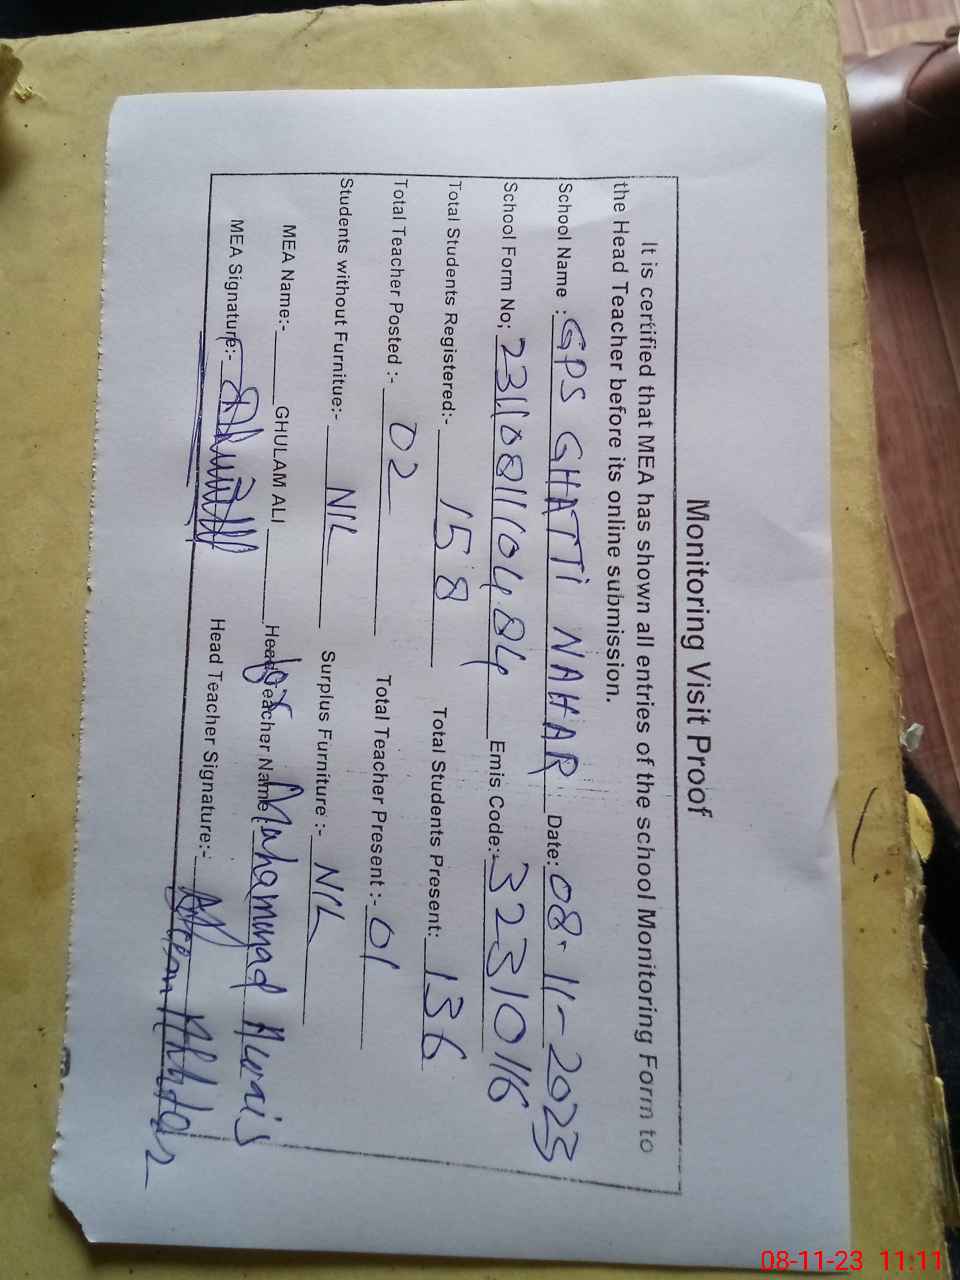 Monitoring Visit Proof
It is certified that MEA has shown all entries of the school Monitoring Form to
the Head Teacher before its online submission.
School Name : GPS GHATTI NAHAR Date: 08-11-2023
School Form No; Emis Code:- 32310116
Total Students Registered:- 158 Total Students Present: 136
Total Teacher Posted :- 02 Total Teacher Present :- 01
Students without Furnitue:- NIL Surplus Furniture :- NIL
MEA Name:- GHULAM ALI Head Teacher Name Muhammad
MEA Signature:- Head Teacher Signature:-
08-11-23 11:11